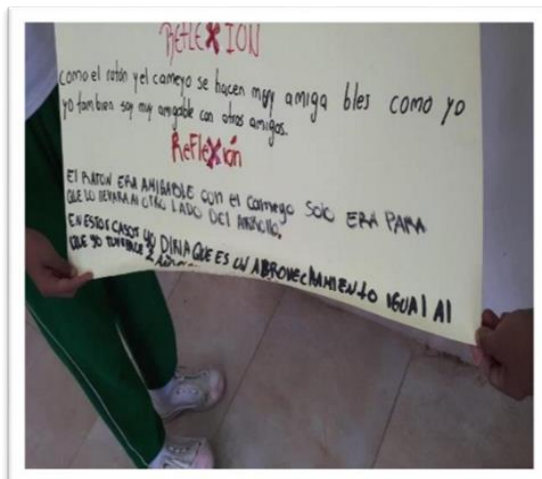 REFLEXION
como el ratón y el cameyo se hacen muy amiga bles como yo
yo tambien soy muy amigable con otros amigos.
ReFleXión
El RATON ERA AMIGABLE con el Cameyo Solo ERA PARA
QUE LO LLEVARA AL OTRO LADO DEL ARROLLO.
EN ESTOS CASOS YO DIRIA QUE ES UN APROVECHAMIENTO IGUAl Al
QUE YO TUVE HACE 2